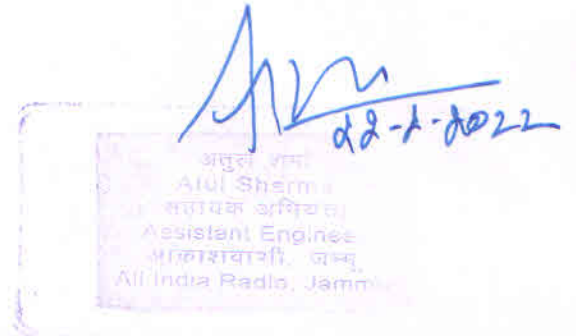 अतुल शर्मा
Atul Sharma
सहायक अभियंता
Assistant Enginee
आकाशवाणी, जम्मू
All India Radio, Jamm